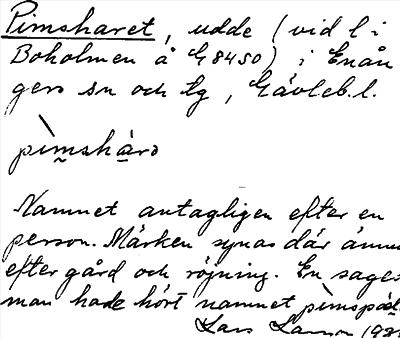 Pimsharet, udde (vid l i
Boholmen å G8450) i Enån
gers sn och tg, Gävleb.l.
pìmshàrə
Namnet antagligen efter en
person. Märken synas där ännu
efter gård och röjning. En sages
man hade hört namnet
Lars